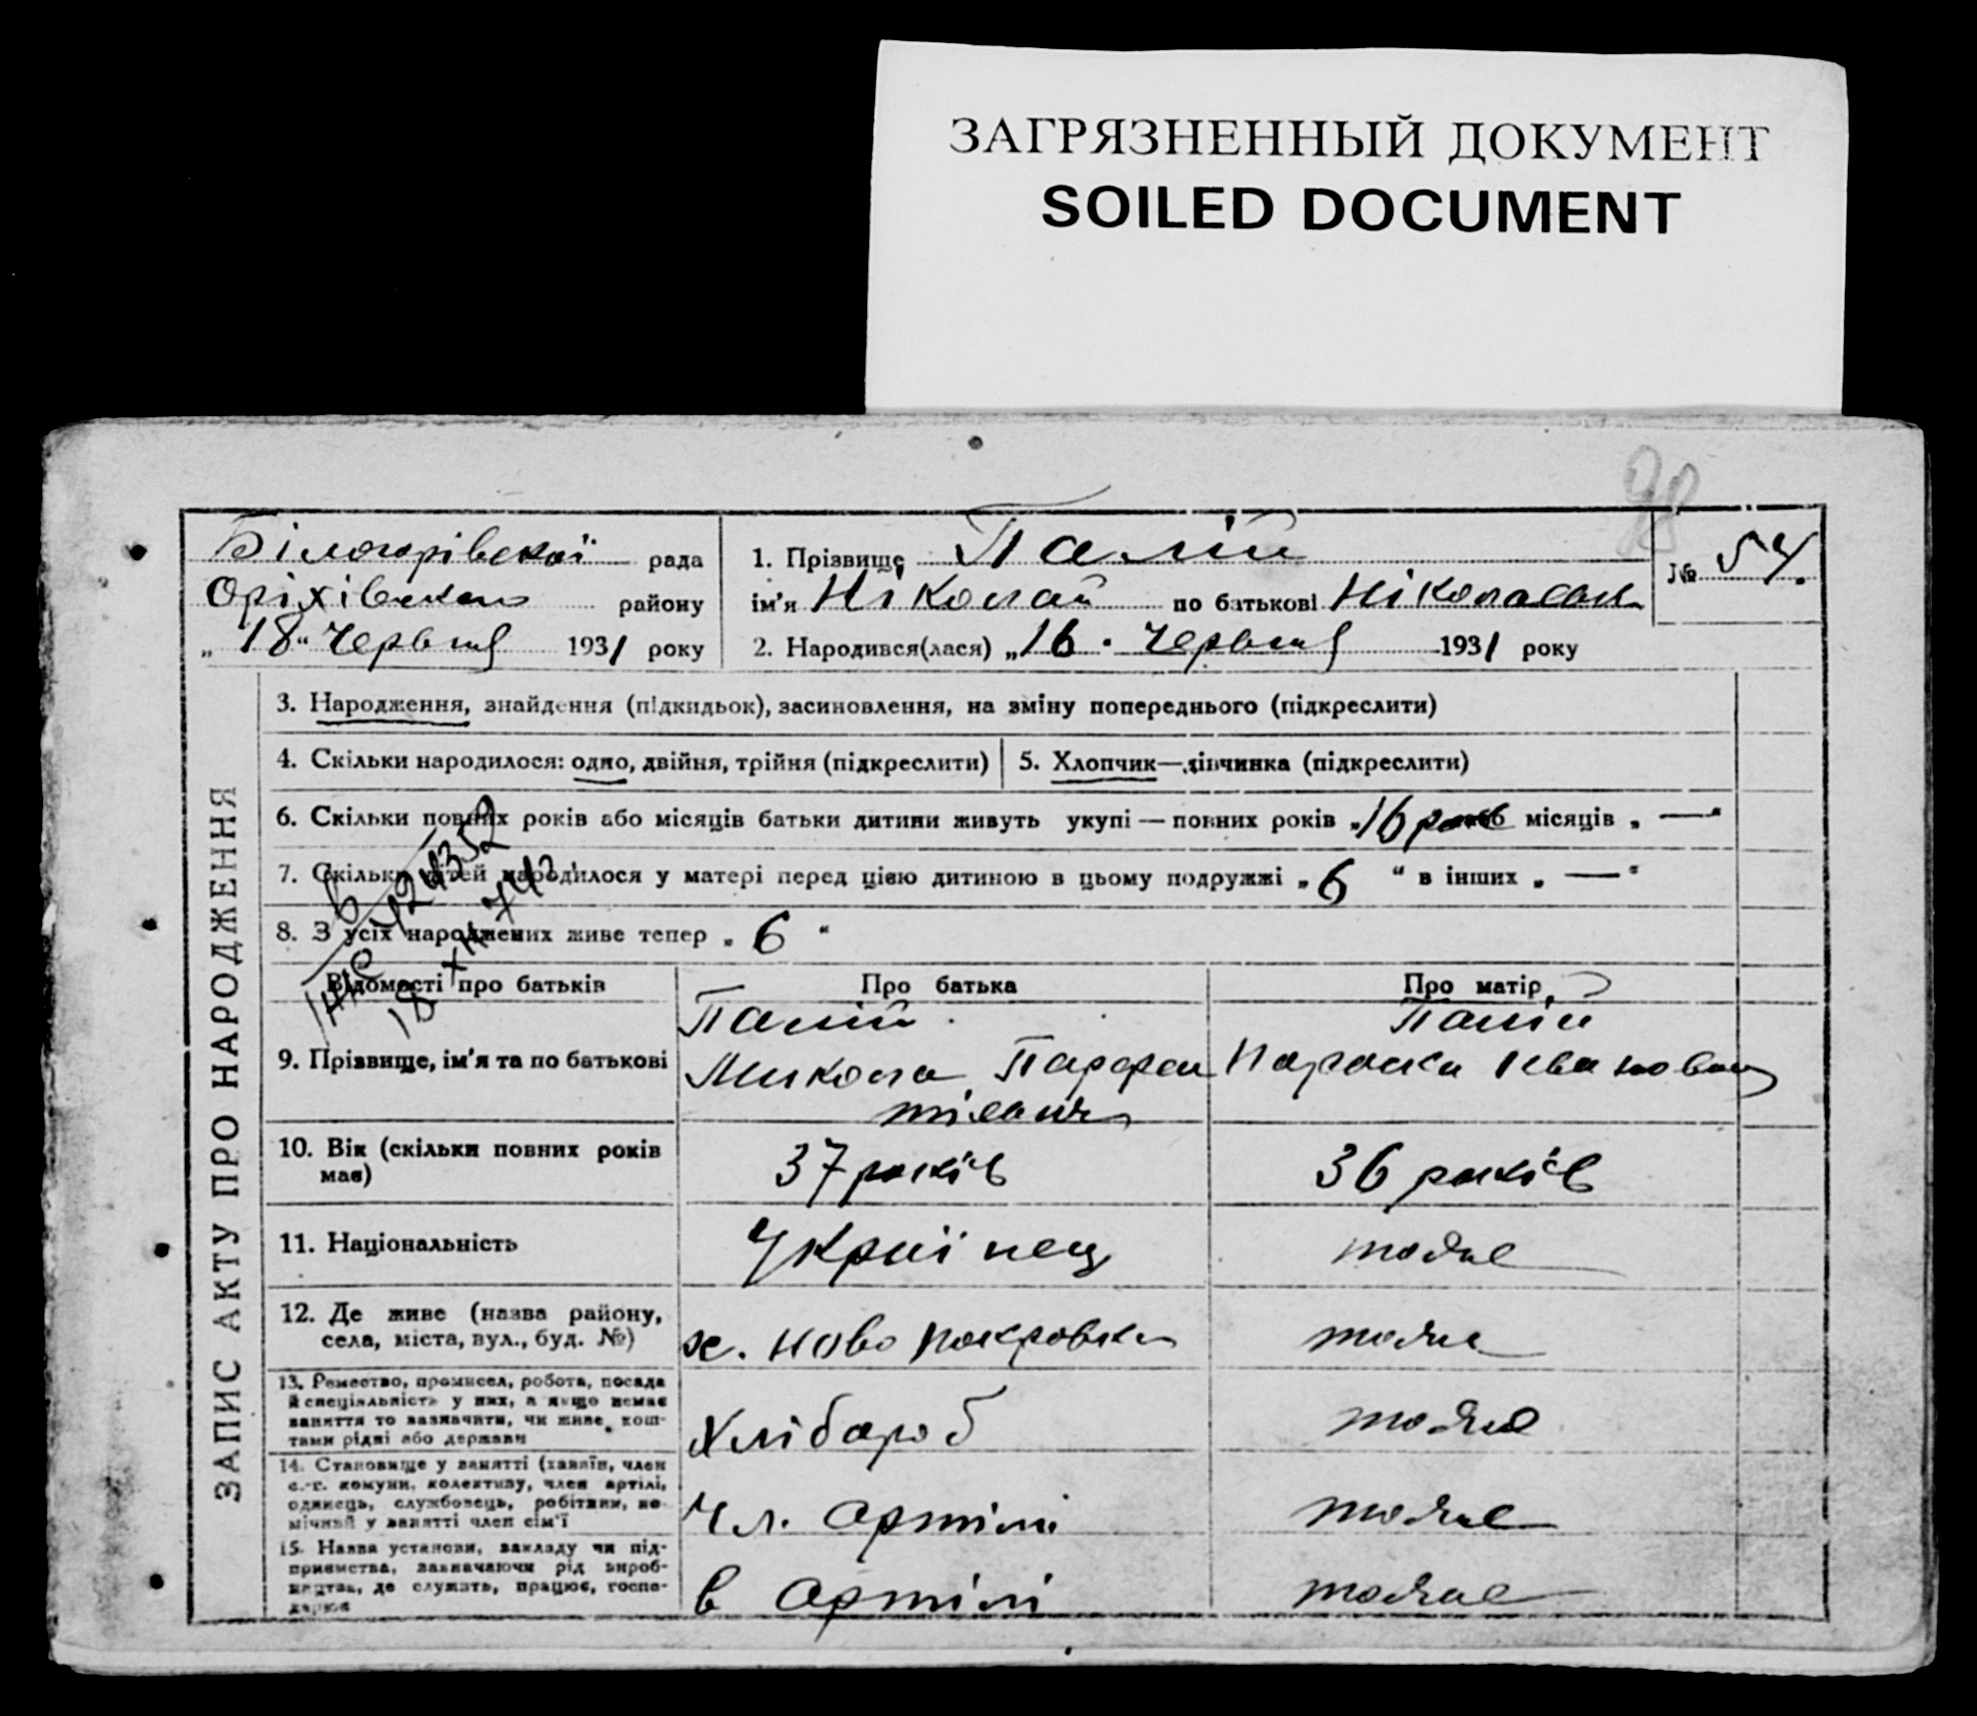 ЗАГРЯЗНЕННЫЙ ДОКУМЕНТ
SOILED DOCUMENT
98
Білогорівської рада
Оріхівського району
„18“ Червня 1931 року
1. Прізвище Палій
ім'я Ніколай по батькові Ніколаєвич
2. Народився(лася) „16. Червня 1931 року
№ 54.
ЗАПИС АКТУ ПРО НАРОДЖЕННЯ
3. Народження, знайдення (підкидьок), засиновлення, на зміну попереднього (підкреслити)
4. Скільки народилося: одно, двійня, трійня (підкреслити)
5. Хлопчик—дівчинка (підкреслити)
6. Скільки повних років або місяців батьки дитини живуть укупі — повних років „16 років місяців „ — “
7. Скільки дітей народилося у матері перед цією дитиною в цьому подружжі „6 “ в інших „ — “
8. З усіх народжених живе тепер „6“
Відомості про батьків
Про батька
Про матір
9. Прізвище, ім'я та по батькові
Палій
Микола Парфен
тієвич
Палій
Параска Івановна
10. Вік (скільки повних років
має)
37 років
36 років
11. Національність
Українец
тоже
12. Де живе (назва району,
села, міста, вул., буд. №)
х. Ново Покровка
тоже
13. Ремество, промисел, робота, посада
й спеціяльність у них, а якщо немає
заняття то зазначити, чи живе кош-
тами рідні або держави
Хлібароб
тоже
14. Становище у занятті (хазяїн, член
с.-г. комуни, колективу, член артілі,
одинець, службовець, робітник, по-
мічний у занятті член сім'ї
Чл. Артілі
тоже
15. Назва установи, закладу чи під-
приємства, зазначаючи рід вироб-
ництва, де служить, працює, госпо-
дарює
в Артілі
тоже